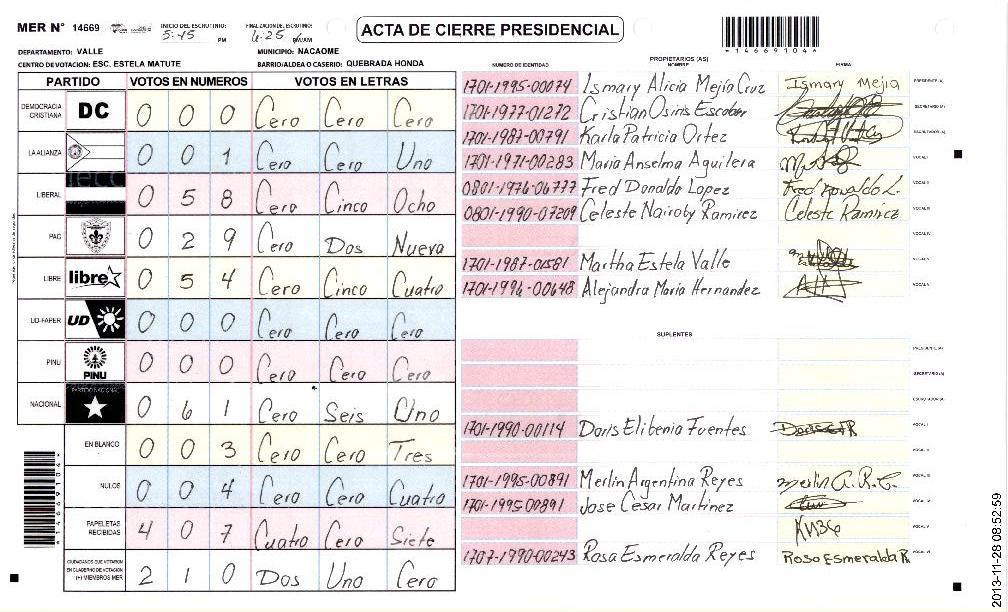 MER N° 14669
INICIO DEL ESCRUTINIO: 5:45 PM
FINALIZACION DEL ESCRUTINIO: 6:25
ACTA DE CIERRE PRESIDENCIAL
*14669104*
DEPARTAMENTO: VALLE
MUNICIPIO: NACAOME
CENTRO DE VOTACION: ESC. ESTELA MATUTE
BARRIO/ALDEA O CASERIO: QUEBRADA HONDA
PARTIDO VOTOS EN NUMEROS VOTOS EN LETRAS
DEMOCRACIA CRISTIANA DC 0 0 0 Cero Cero Cero
LA ALIANZA 0 0 1 Cero Cero Uno
LIBERAL 0 5 8 Cero Cinco Ocho
PAC 0 2 9 Cero Dos Nueva
LIBRE libre 0 5 4 Cero Cinco Cuatro
UD-FAPER UD 0 0 0 Cero Cero Cero
PINU PINU 0 0 0 Cero Cero Cero
NACIONAL PARTIDO NACIONAL 0 6 1 Cero Seis Uno
EN BLANCO 0 0 3 Cero Cero Tres
NULOS 0 0 4 Cero Cero Cuatro
PAPELETAS RECIBIDAS 4 0 7 Cuatro Cero Siete
CIUDADANOS QUE VOTARON EN CUADERNO DE VOTACION (+) MIEMBROS MER 2 1 0 Dos Uno Cero
*14669104*
PROPIETARIOS (AS)
NUMERO DE IDENTIDAD NOMBRE FIRMA
1701-1995-00074 Ismary Alicia Mejía Cruz Ismary Mejia PRESIDENTE (A)
1701-1977-01272 Cristian Osiris Escobar SECRETARIO (A)
1701-1987-00791 Karla Patricia Ortez ESCRUTADOR (A)
1701-1971-00283 Maria Anselma Aguilera VOCAL I
0801-1976-06777 Fred Donaldo Lopez Fred Donaldo L. VOCAL II
0801-1990-07209 Celeste Nairoby Ramirez Celeste Ramirez VOCAL III
VOCAL IV
1701-1987-01581 Martha Estela Valle VOCAL V
1701-1996-00648 Alejandra Maria Hernandez
SUPLENTES
PRESIDENTE (A)
SECRETARIO (A)
ESCRUTADOR (A)
1701-1990-00114 Doris Elibenia Fuentes VOCAL I
VOCAL II
1701-1995-00891 Merlin Argentina Reyes Merlin A.R.C. VOCAL III
1701-1995-00891 Jose Cesar Martinez VOCAL IV
VOCAL V
1707-1990-00243 Rosa Esmeralda Reyes Rosa Esmeralda R VOCAL VI
2013-11-28 08:52:59